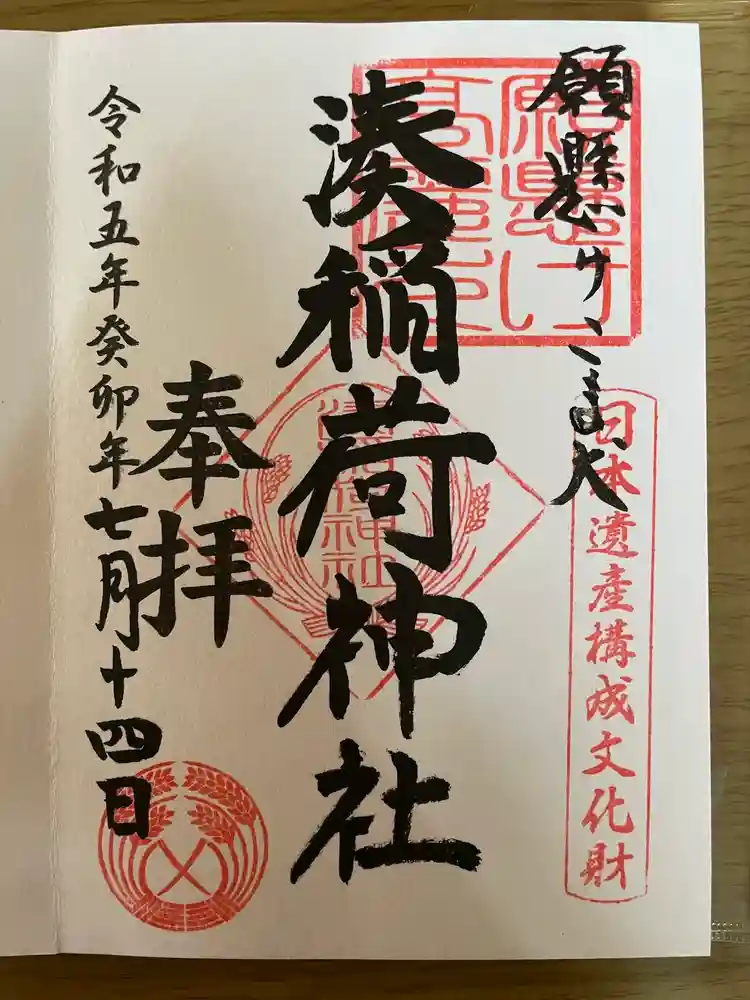 願懸けこま犬
願懸け高麗犬
日本遺産構成文化財
湊稲荷神社
湊稲荷神社
奉拝
令和五年癸卯年七月十四日